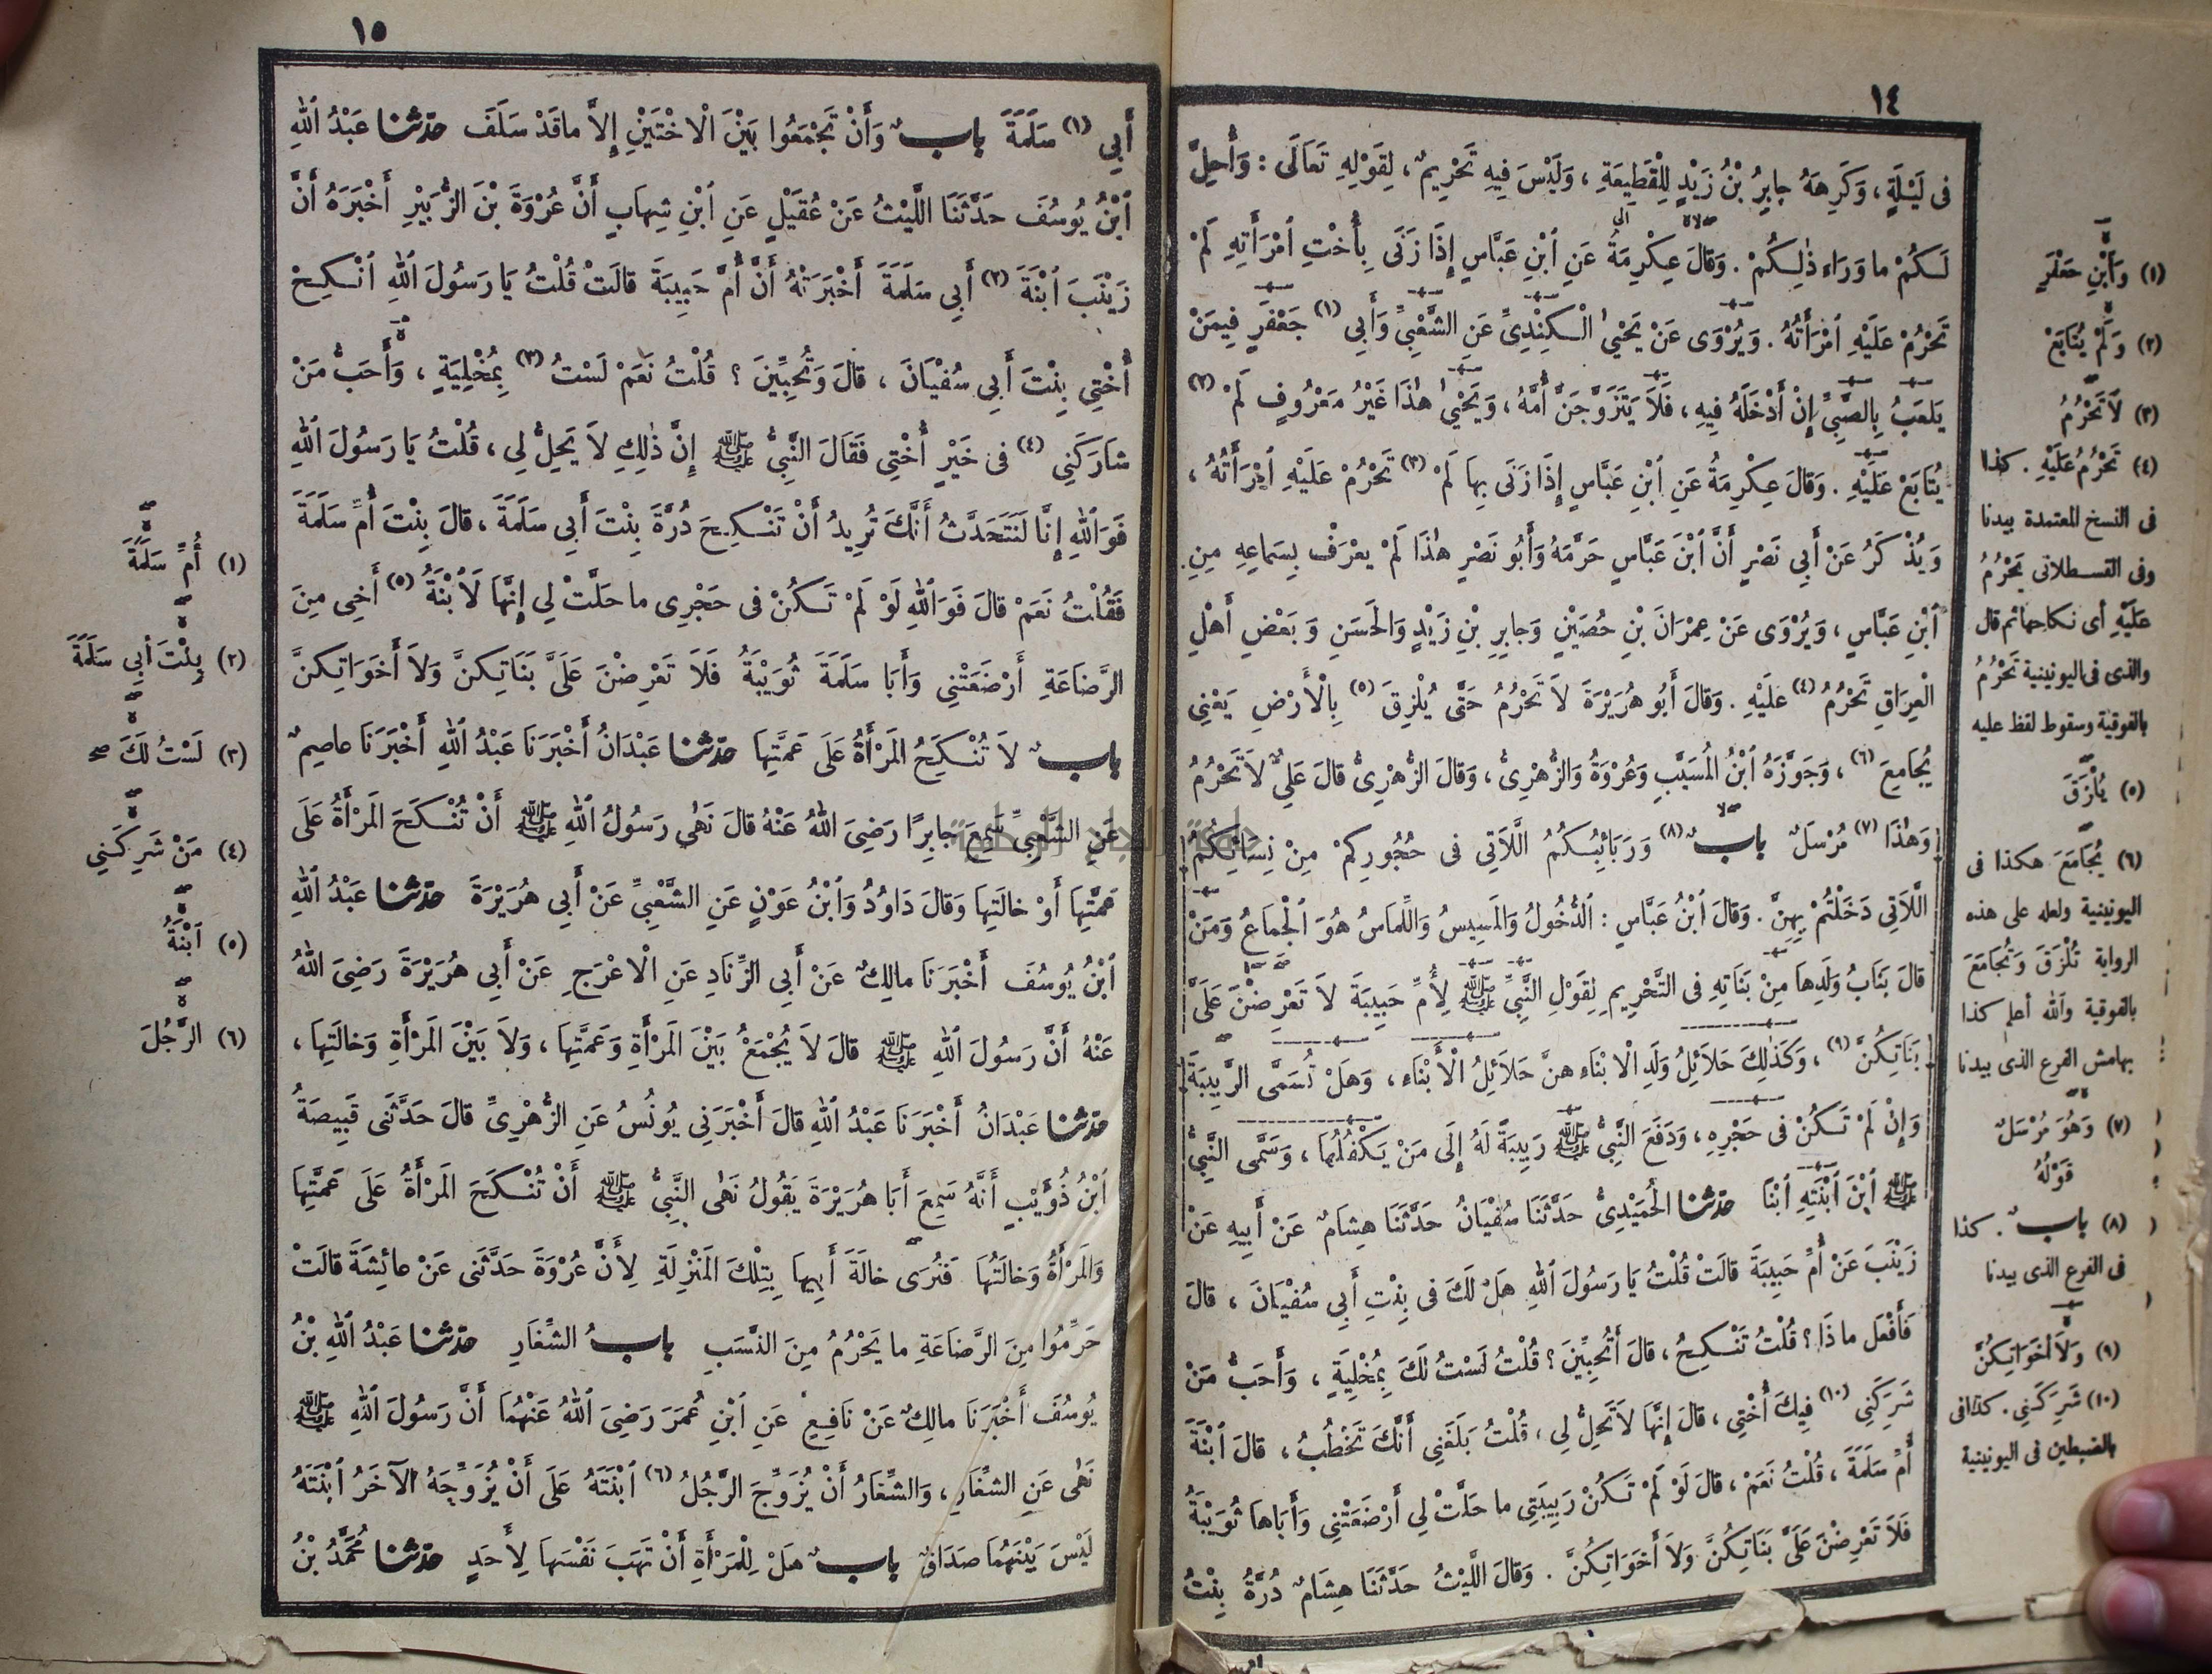 ١٤
فى لَيْلَةٍ ، وَكَرِهَهُ جابِرُ بْنُ زَيْدٍ لِلْقَطِيعَةِ ، وَلَيْسَ فِيهِ تَحْرِيمٌ ، لِقَوْلِهِ تَعَالَى : وَأُحِلَّ
لَكُمْ ما وَرَاء ذٰلِكُمْ . وَقالَ عِكْرِمَةُ عَنِ ٱبْنِ عَبَّاسٍ إِذَا زَنَى بِأُخْتِ ٱمْرَأَتِهِ لَمْ
تَحْرُمْ عَلَيْهِ ٱمْرَأَتُهُ . وَيُرْوَى عَنْ يَحْيىٰ الْكِنْدِىِّ عَنِ الشَّعْبِىِّ وَأَبِى (١) جَعْفَرٍ فِيمَنْ
يَلعَبُ بِالصَّبِىِّ إِنْ أَدْخَلَهُ فِيهِ ، فَلَا يَتَزَوَّجَنَّ أُمَّهُ ، وَيَحْيىٰ هٰذَا غَيْرُ مَعْرُوفٍ لَمْ (٢)
يُتَابَعْ عَلَيْهِ . وَقالَ عِكْرِمَةُ عَنِ ٱبْنِ عَبَّاسٍ إِذَا زَنَى بِهَا لَمْ (٣) تَحْرُمْ عَلَيْهِ ٱمْرَأَتُهُ ،
وَيُذْكَرُ عَنْ أَبِى نَصْرٍ أَنَّ ٱبْنَ عَبَّاسٍ حَرَّمَهُ وَأَبُو نَصْرٍ هٰذَا لَمْ يعْرَفْ بِسَماعِهِ مِنِ
ٱبْنِ عَبَّاسٍ ، وَيُرْوَى عَنْ عِمْرَانَ بْنِ حُصَيْنٍ وَجابِرِ بْنِ زَيْدٍ وَالحَسَنِ وَبَعْضِ أَهْلِ
الْعِرَاقِ تَحْرُمُ (٤) عَلَيْهِ . وَقالَ أَبُو هُرَيْرَةَ لاَ تَحْرُمُ حَتَّى يُلْزِقَ (٥) بِالْأَرْضِ يَعْنِى
يُجَامِعَ (٦) ، وَجَوَّزَهُ ٱبْنُ المُسَيَّبِ وَعُرْوَةُ وَالزُّهْرِىُّ ، وَقالَ الزُّهْرِىُّ قالَ عَلِىٌّ لاَ تَحْرُمُ
وَهٰذَا (٧) مُرْسَلٌ باب (٨) وَرَبَائِبُكُمُ اللَّاتِى فى حُجُورِكمْ مِنْ نِسَائِكُمُ
اللَّاتِى دَخَلْتُمْ بِهِنَّ . وَقالَ ٱبْنُ عَبَّاسٍ : ٱلدُّخُولُ وَالمَسِيسُ وَاللِّمَاسُ هُوَ ٱلْجِمَاعُ وَمَنْ
قالَ بَنَاتُ وَلَدِهَا مِنْ بَنَاتِهِ فى التَّحْرِيمِ لِقَوْلِ النَّبِىِّ ﷺ لِأُمِّ حَبِيبَةَ لاَ تَعْرِضْنَ عَلَىَّ
بَنَاتِكُنَّ (٩) ، وَكَذٰلِكَ حَلاَئِلُ وَلَدِ الْابْنَاءِ هنَّ حَلاَئِلُ الْأَبْنَاءِ ، وَهَلْ تُسَمَّى الرَّبِيبَةَ
وَإِنْ لَمْ تَكُنْ فى حَجْرِهِ ، وَدَفَعَ النَّبِىُّ ﷺ رَبِيبَةً لَهُ إِلَى مَنْ يَكْفُلُهَا ، وَسَمَّى النَّبِىُّ
ﷺ ٱبْنَ ٱبْنَتِهِ ٱبْنًا حدّثنا الحُمَيْدِىُّ حَدَّثَنَا سُفْيَانُ حَدَّثَنَا هِشَامٌ عَنْ أَبِيهِ عَنْ
زَيْنَبَ عَنْ أُمِّ حَبِيبَةَ قالَتْ قُلْتُ يَا رَسُولَ ٱللهِ هَلْ لَكَ فى بِنْتِ أَبِى سُفْيَانَ ، قالَ
فَأَفْعَل ماذَا ؟ قُلْتُ تَنْكِحُ ، قالَ أَتُحِبِّينَ ؟ قُلْتُ لَسْتُ لَكَ بِمُخْلِيَةٍ ، وَأَحَبُّ مَنْ
شَرِكَنِى (١٠) فِيكَ أُخْتِى ، قالَ إِنَّهَا لاَ تَحِلُّ لِى ، قُلْتُ بَلَغَنِى أَنَّكَ تَخْطُبُ ، قالَ ٱبْنَةَ
أُمِّ سَلَمَةَ ، قُلْتُ نَعَمْ ، قالَ لَوْ لَمْ تَكُنْ رَبِيبَتِى ما حَلَّتْ لِى أَرْضَعَتْنِى وَأَبَاها ثُوَيْبَةُ
فَلاَ تَعْرِضْنَ عَلَىَّ بَنَاتِكُنَّ وَلاَ أَخَوَاتِكُنَّ . وَقالَ اللَّيْثُ حَدَّثَنَا هِشَامٌ دُرَّةُ بِنْتُ
(١) وَٱبْنِ جَعْفَرٍ
(٢) وَلَمْ يُتَابَعْ
(٣) لاَ تَحْرُمُ
(٤) تَحْرُمُ عَلَيْهِ . كذا
فى النسخ المعتمدة بيدنا
وفى القسطلانى يَحْرُمُ
عَلَيْهِ أى نكاحها ثم قال
والذى فى اليونينية تَحْرُمُ
بالفوقية وسقوط لفظ عليه
(٥) يُلْزَقَ
(٦) يُجَامَعَ هكذا فى
اليونينية ولعله على هذه
الرواية تُلْزَقَ وَتُجَامَعَ
بالفوقية والله أعلم كذا
بهامش الفرع الذى بيدنا
(٧) وَهُوَ مُرْسَلٌ
قَوْلُهُ
(٨) باب . كذا
فى الفرع الذى بيدنا
(٩) وَلاَ أَخَوَاتِكُنَّ
(١٠) شَرِكَنِى . كذا فى
بالضبطين فى اليونينية
١٥
أَبِى (١) سَلَمَةَ باب وَأَنْ تَجْمَعُوا بَيْنَ الْاخْتَيْنِ إِلاَّ ماقَدْ سَلَفَ حدّثنا عَبْدُ ٱللهِ
ٱبْنُ يُوسُفَ حَدَّثَنَا اللَّيْثُ عَنْ عُقَيْلٍ عَنِ ٱبْنِ شِهَابٍ أَنَّ عُرْوَةَ بْنَ الزُّبَيْرِ أَخْبَرَهُ أَنَّ
زَيْنَبَ ٱبْنَةَ (٢) أَبِى سَلَمَةَ أَخْبَرَتْهُ أَنَّ أُمَّ حَبِيبَةَ قالَتْ قُلْتُ يَا رَسُولَ ٱللهِ ٱنْكِحْ
أُخْتِى بِنْتَ أَبِى سُفْيَانَ ، قالَ وَتُحِبِّينَ ؟ قُلْتُ نَعَمْ لَسْتُ (٣) بِمُخْلِيَةٍ ، وَأَحَبُّ مَنْ
شارَكَنِى (٤) فى خَيْرٍ أُخْتِى فَقَالَ النَّبِىُّ ﷺ إِنَّ ذٰلِكِ لاَ يَحِلُّ لِى ، قُلْتُ يَا رَسُولَ ٱللهِ
فَوَٱللهِ إِنَّا لَنَتَحَدَّثُ أَنَّكَ تُرِيدُ أَنْ تَنْكِحَ دُرَّةَ بِنْتَ أَبِى سَلَمَةَ ، قالَ بِنْتَ أُمِّ سَلَمَةَ
فَقُلْتُ نَعَمْ قالَ فَوَٱللهِ لَوْ لَمْ تَكُنْ فى حَجْرِى ما حَلَّتْ لِى إِنَّهَا لَاَبْنَةُ (٥) أَخِى مِنَ
الرَّضَاعَةِ أَرْضَعَتْنِى وَأَبَا سَلَمَةَ ثُوَيْبَةُ فَلَا تَعْرِضْنَ عَلَىَّ بَنَاتِكنَّ وَلاَ أَخَوَاتِكنَّ
باب لاَ تُنْكَحُ المَرْأَةُ عَلَى عَمَّتِهَا حدّثنا عَبْدَانُ أَخْبَرَنَا عَبْدُ ٱللهِ أَخْبَرَنَا عاصِمٌ
عَنِ الشَّعْبِىِّ سَمِعَ جابِرًا رَضِىَ ٱللهُ عَنْهُ قالَ نَهٰى رَسُولُ ٱللهِ ﷺ أَنْ تُنْكَحَ المَرْأَةُ عَلَى
عَمَّتِهَا أَوْ خالَتِها وَقالَ دَاوُدُ وَٱبْنُ عَوْنٍ عَنِ الشَّعْبِىِّ عَنْ أَبِى هُرَيْرَةَ حدّثنا عَبْدُ ٱللهِ
ٱبْنُ يُوسُفَ أَخْبَرَنَا مالِكٌ عَنْ أَبِى الزِّنَادِ عَنِ الْاعْرَجِ عَنْ أَبِى هُرَيْرَةَ رَضِىَ ٱللهُ
عَنْهُ أَنَّ رَسُولَ ٱللهِ ﷺ قالَ لاَ يُجْمَعُ بَيْنَ المَرْأَةِ وَعَمَّتِهَا ، وَلاَ بَيْنَ المَرْأَةِ وَخالَتِهَا ،
حدّثنا عَبْدَانُ أَخْبَرَنَا عَبْدُ ٱللهِ قالَ أَخْبَرَنِى يُونُسُ عَنِ الزُّهْرِىِّ قالَ حَدَّثَنِى قَبِيصَةُ
ٱبْنُ ذُوَيْبٍ أَنَّهُ سَمِعَ أَبَا هُرَيْرَةَ يَقُولُ نَهٰى النَّبِىُّ ﷺ أَنْ تُنْكَحَ المَرْأَةُ عَلَى عَمَّتِهَا
وَالمَرْأَةُ وَخالَتُهَا فَنُرَى خالَةَ أَبِيها بِتِلْكَ المَنْزِلَةِ لِأَنَّ عُرْوَةَ حَدَّثَنِى عَنْ عائِشَةَ قالَتْ
حَرِّمُوا مِنَ الرَّضَاعَةِ ما يَحْرُمُ مِنَ النَّسَبِ باب الشِّغَارِ حدّثنا عَبْدُ ٱللهِ بْنُ
يُوسُفَ أَخْبَرَنَا مالِكٌ عَنْ نَافِعٍ عَنِ ٱبْنِ عُمَرَ رَضِىَ ٱللهُ عَنْهُمَا أَنَّ رَسُولَ ٱللهِ ﷺ
نَهٰى عَنِ الشِّغَارِ ، وَالشِّغَارُ أَنْ يُزَوِّجَ الرَّجُلُ (٦) ٱبْنَتَهُ عَلَى أَنْ يُزَوِّجَهُ الآخَرُ ٱبْنَتَهُ
لَيْسَ بَيْنَهُمَا صَدَاقٌ باب هَلْ لِلْمَرْأَةِ أَنْ تَهَبَ نَفْسَهَا لِأَحَدٍ حدّثنا مُحَمَّدُ بْنُ
(١) أُمِّ سَلَمَةَ
(٢) بِنْتَ أَبِى سَلَمَةَ
(٣) لَسْتُ لَكَ صح
(٤) مَنْ شَرِكَنِى
(٥) ٱبْنَةُ
(٦) الرَّجُلَ